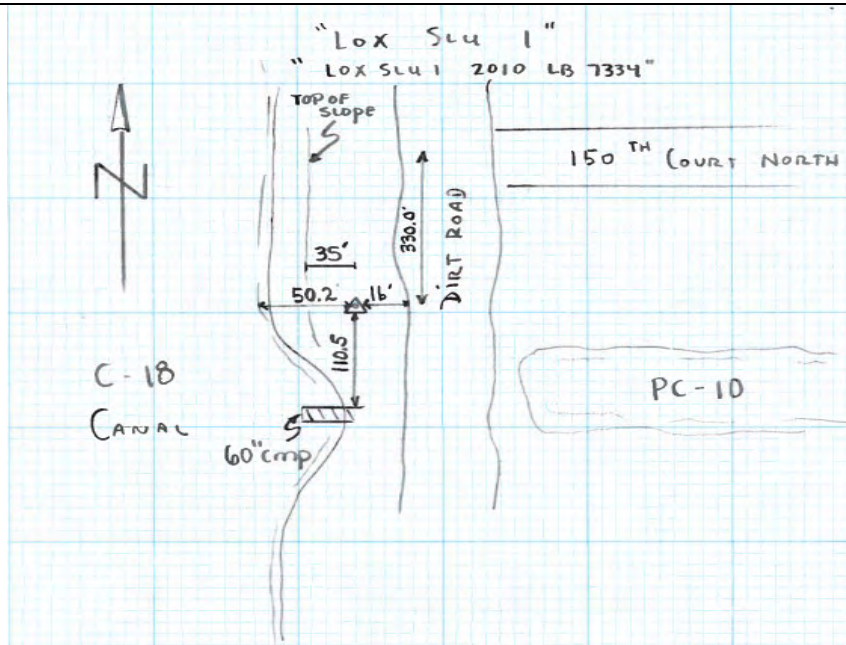 "LOX SLU 1"
"LOX SLU 1 2010 LB 7334"
TOP OF
SLOPE
150TH COURT NORTH
N
330.0'
DIRT ROAD
35'
50.2'
16'
110.5
C-18
CANAL
PC-10
60" cmp